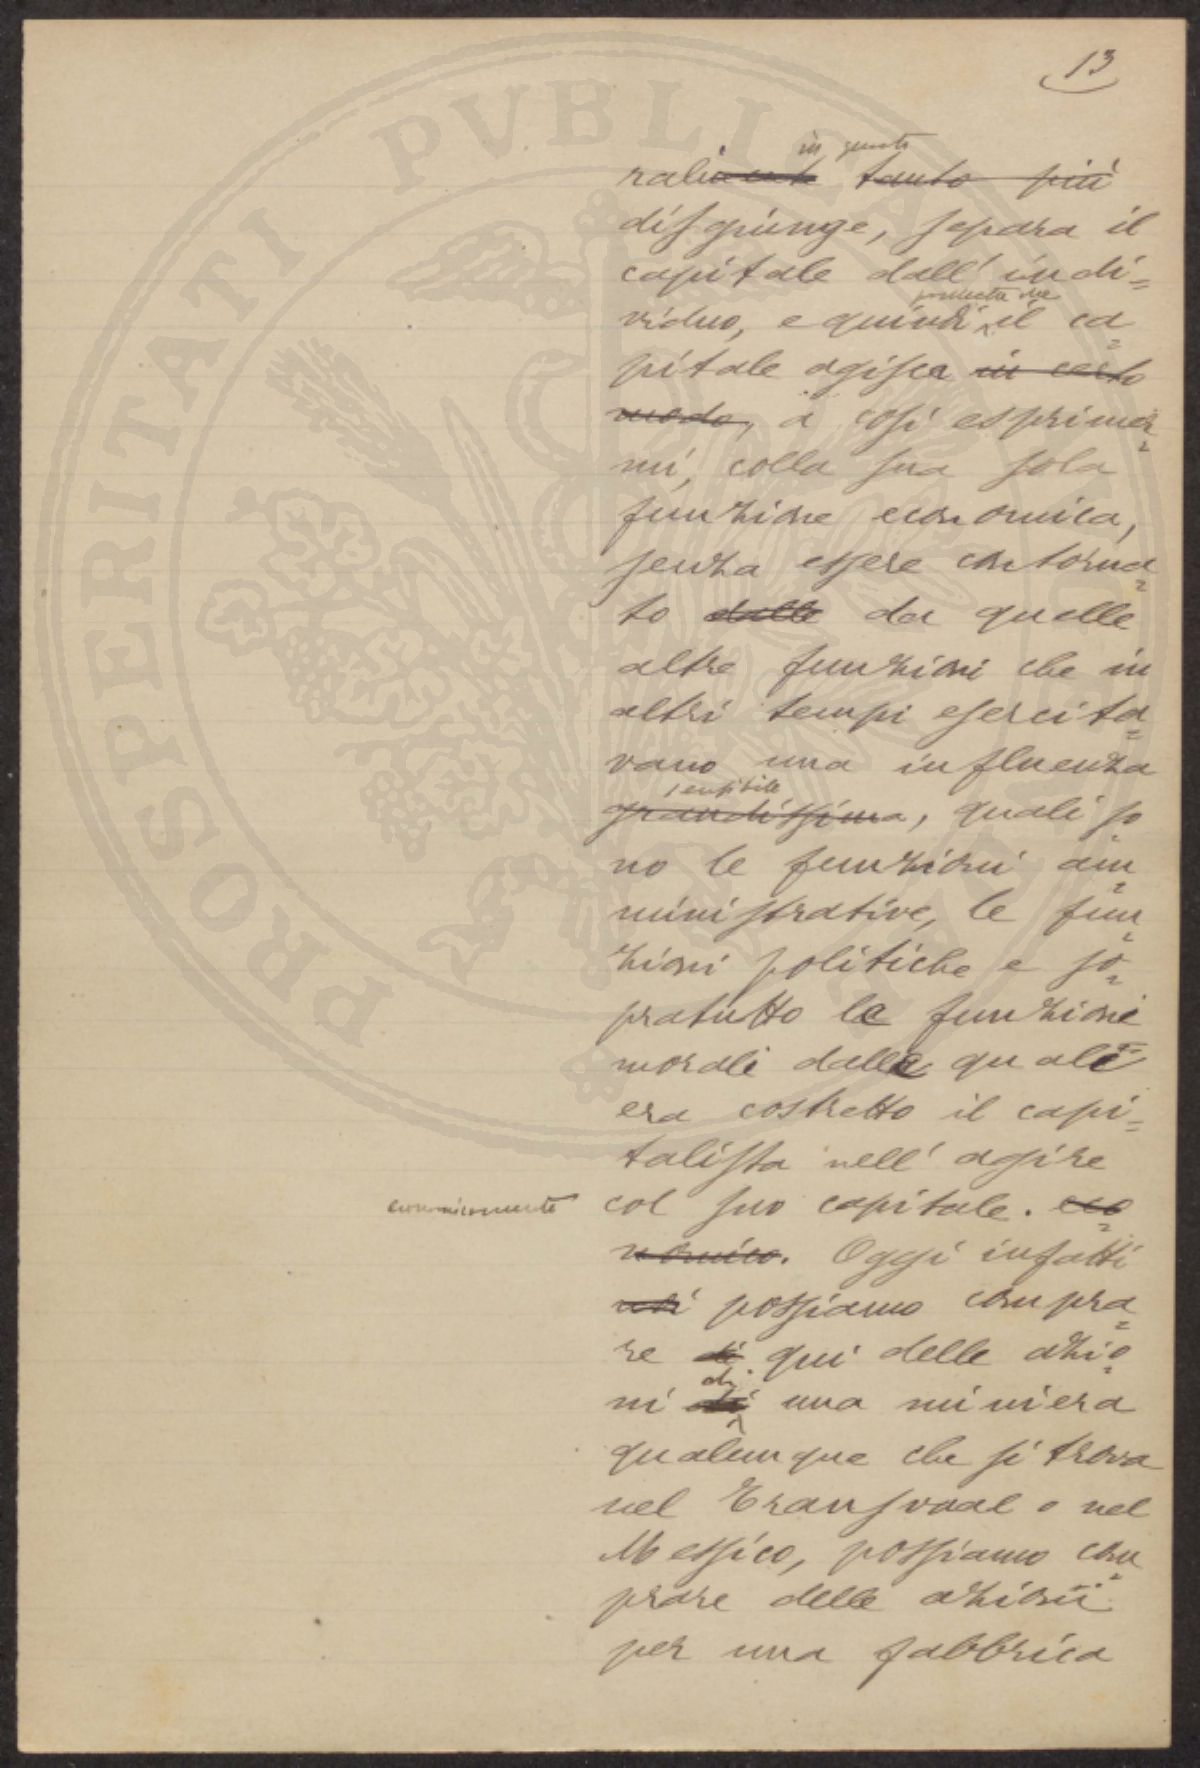 13
in quanto
ralmente tanto più
disgiunge, separa il
capitale dall'indi=
permette che
viduo, e quindi il ca=
pitale agisca in certo
modo, a così esprimer=
mi, colla sua sola
funzione economica,
senza essere contorna=
to dalle da quelle
altre funzioni che in
altri tempi esercita=
vano una influenza
sensibile
grandissima, quali so
no le funzioni am=
ministrative, le fun=
zioni politiche e so=
pratutto le funzioni
morali dalle quali
era costretto il capi=
talista nell'agire
economicamente
col suo capitale. eco=
nomico. Oggi infatti
noi possiamo compra=
re di qui delle azio=
di
ni di una miniera
qualunque che si trova
nel Transvaal o nel
Messico, possiamo com=
prare delle azioni
per una fabbrica
PROSPERITATI PVBLICAE